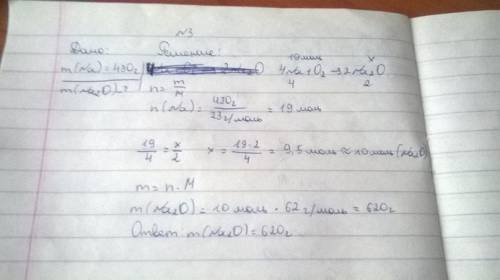 №3
Дано: Решение:
m(Na)=430г 4Na+O₂→2Na₂O
19 моль x
4 2
m(Na₂O)-? n=m/M
n(Na)= 430г / 23г/моль = 19 моль
19/4 = x/2 x = 19·2/4 = 9,5 моль ≈ 10 моль (Na₂O)
m = n·M
m(Na₂O) = 10 моль · 62 г/моль = 620г
Ответ: m(Na₂O) = 620г